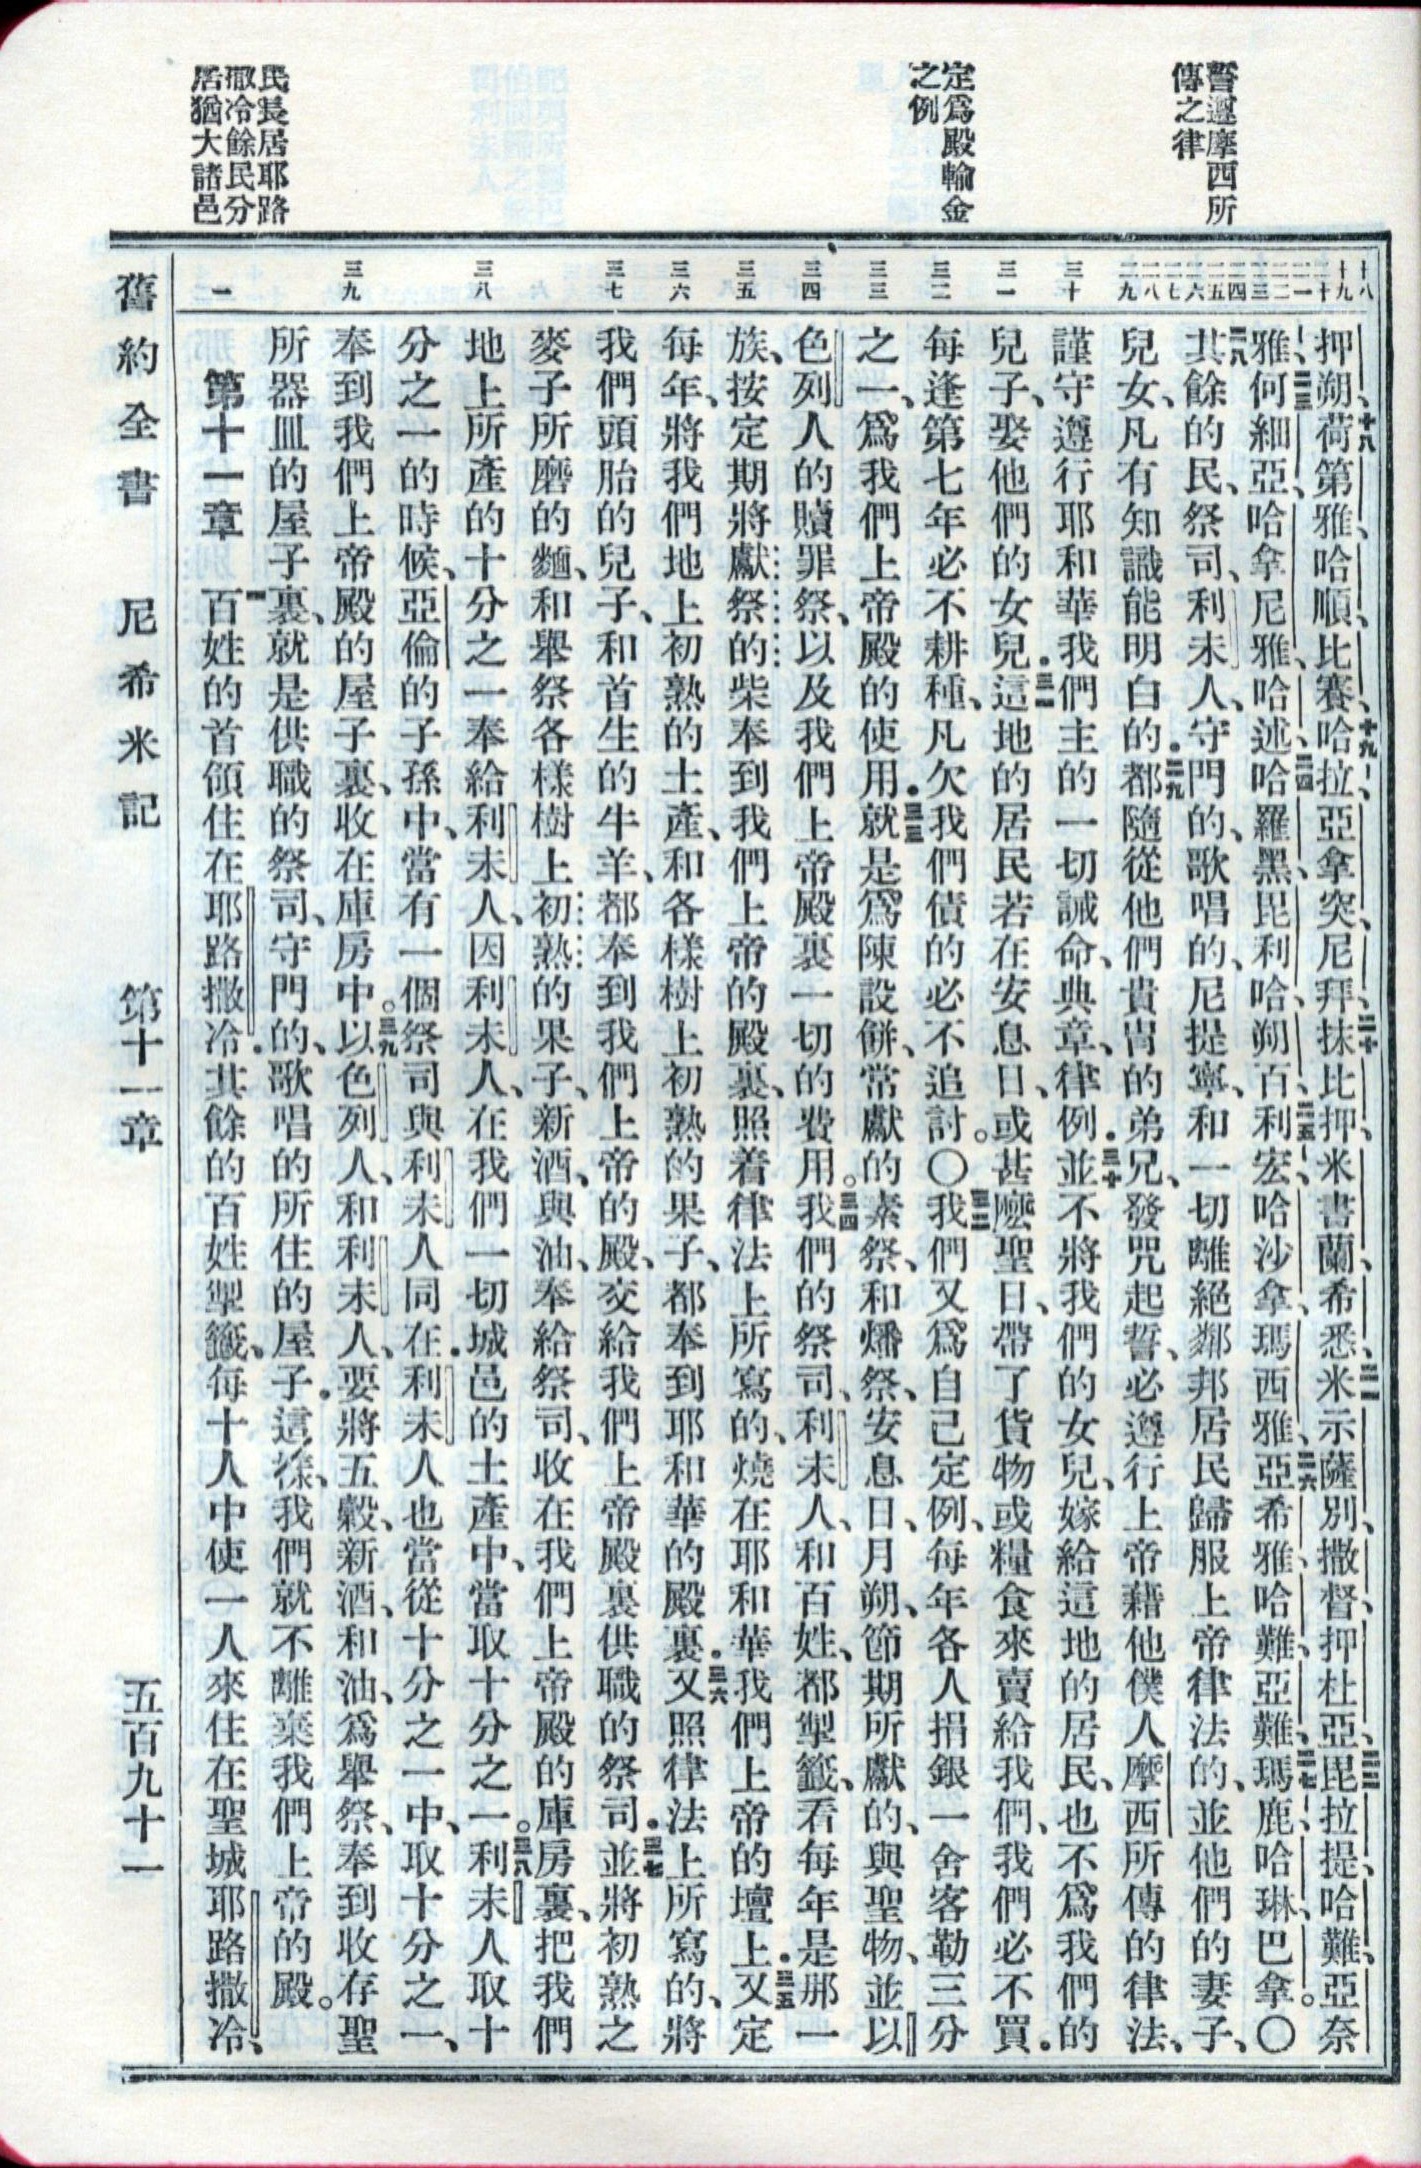 誓遵摩西所
傳之律
定爲殿輸金
之例
民長居耶路
撒冷餘民分
居猶大諸邑
十八
十九
二十
二一
二二
二三
二四
二五
二六
二七
二八
二九
三十
三一
三二
三三
三四
三五
三六
三七
三八
三九
一
押朔、十八荷第雅、哈順、比賽、十九哈拉亞拿突、尼拜、二十抹比押、米書蘭、希悉、二一米示薩別、撒督、押杜亞、二二毘拉提、哈難、亞奈
雅、二三何細亞、哈拿尼雅、哈述、二四哈羅黑、毘利哈、朔百、二五利宏、哈沙拿、瑪西雅、二六亞希雅、哈難、亞難、二七瑪鹿、哈琳、巴拿。〇
二八其餘的民、祭司、利未人、守門的、歌唱的、尼提寧、和一切離絕鄰邦居民歸服上帝律法的、並他們的妻子、
兒女、凡有知識能明白的．二九都隨從他們貴冑的弟兄、發咒起誓、必遵行上帝藉他僕人摩西所傳的律法、
謹守遵行耶和華我們主的一切誡命、典章、律例．三十並不將我們的女兒、嫁給這地的居民、也不爲我們的
兒子、娶他們的女兒．三一這地的居民若在安息日、或甚麼聖日、帶了貨物或糧食來賣給我們、我們必不買．
每逢第七年必不耕種、凡欠我們債的必不追討。〇三二我們又爲自己定例、每年各人捐銀一舍客勒三分
之一、爲我們上帝殿的使用．三三就是爲陳設餅、常獻的素祭、和燔祭、安息日、月朔、節期所獻的、與聖物、並以
色列人的贖罪祭、以及我們上帝殿裏一切的費用。三四我們的祭司、利未人、和百姓、都掣籤、看每年是那一
族、按定期將獻祭的柴奉到我們上帝的殿裏、照着律法上所寫的、燒在耶和華我們上帝的壇上．三五又定
每年、將我們地上初熟的土產、和各樣樹上初熟的果子、都奉到耶和華的殿裏．三六又照律法上所寫的、將
我們頭胎的兒子、和首生的牛羊、都奉到我們上帝的殿、交給我們上帝殿裏供職的祭司．三七並將初熟之
麥子所磨的麵、和舉祭各樣樹上初熟的果子、新酒、與油、奉給祭司、收在我們上帝殿的庫房裏、把我們
地上所產的十分之一奉給利未人、因利未人、在我們一切城邑的土產中、當取十分之一。三八利未人取十
分之一的時候、亞倫的子孫中、當有一個祭司與利未人同在．利未人也當從十分之一中、取十分之一、
奉到我們上帝殿的屋子裏、收在庫房中。三九以色列人、和利未人、要將五穀、新酒、和油、爲舉祭、奉到收存聖
所器皿的屋子裏、就是供職的祭司、守門的、歌唱的所住的屋子．這樣、我們就不離棄我們上帝的殿。
第十一章 一百姓的首領住在耶路撒冷．其餘的百姓掣籤、每十人中使一人來住在聖城耶路撒冷、
舊約全書 尼希米記 第十一章 五百九十一